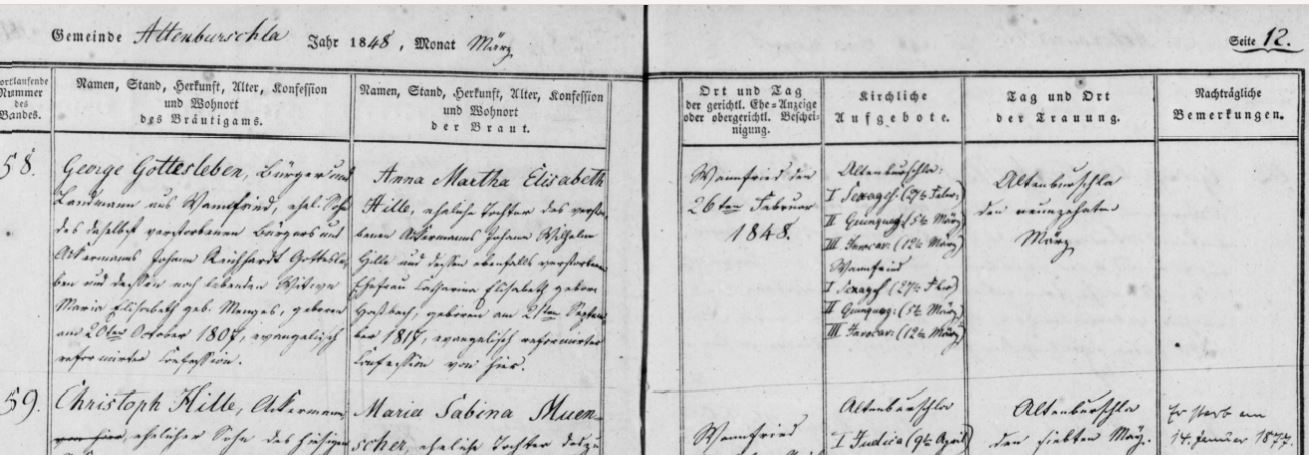 Gemeinde Altenburschla Jahr 1848, Monat März
Seite 12.
Fortlaufende
Nummer
des
Bandes.
Namen, Stand, Herkunft, Alter, Konfession
und Wohnort
des Bräutigams.
Namen, Stand, Herkunft, Alter, Konfession
und Wohnort
der Braut.
Ort und Tag
der gerichtl. Ehe=Anzeige
oder obergerichtl. Beschei-
nigung.
Kirchliche
Aufgebote.
Tag und Ort
der Trauung.
Nachträgliche
Bemerkungen.
58.
George Gottesleben, Bürger und
Landmann aus Wannfried, ehel. Sohn
des daselbst verstorbenen Bürgers und
Ackermanns Johann Reichhardt Gottesle-
ben und dessen noch lebenden Witwe
Maria Elisabeth geb. Menges, geboren
am 20ten October 1807, evangelisch
reformirter Confession.
Anna Martha Elisabeth
Hille, eheliche Tochter des verstor-
benen Ackermanns Johann Wilhelm
Hille und dessen ebenfalls verstorbenen
Ehefrau Catharina Elisabeth geborene
geboren am 21ten Septem-
ber 1817, evangelisch reformirter
Confession von hier.
Wannfried den
26ten Februar
1848.
Altenburschla:
I Sexages. (27te Febr.)
II Quinquag. (5te März)
III Invocav. (12te März)
Wannfried
I Sexages. (27te Febr.)
II Quinquag. (5te März)
III Invocav. (12te März)
Altenburschla
den neunzehnten
März
59.
Christoph Hille, Ackermann
von hier, ehelicher Sohn des hiesigen
Maria Sabina Muen-
scher, eheliche Tochter des zu
Wannfried
Altenburschla
I Judica (9te April)
Altenburschla
den siebten May.
Er starb am
14. Januar 1877.